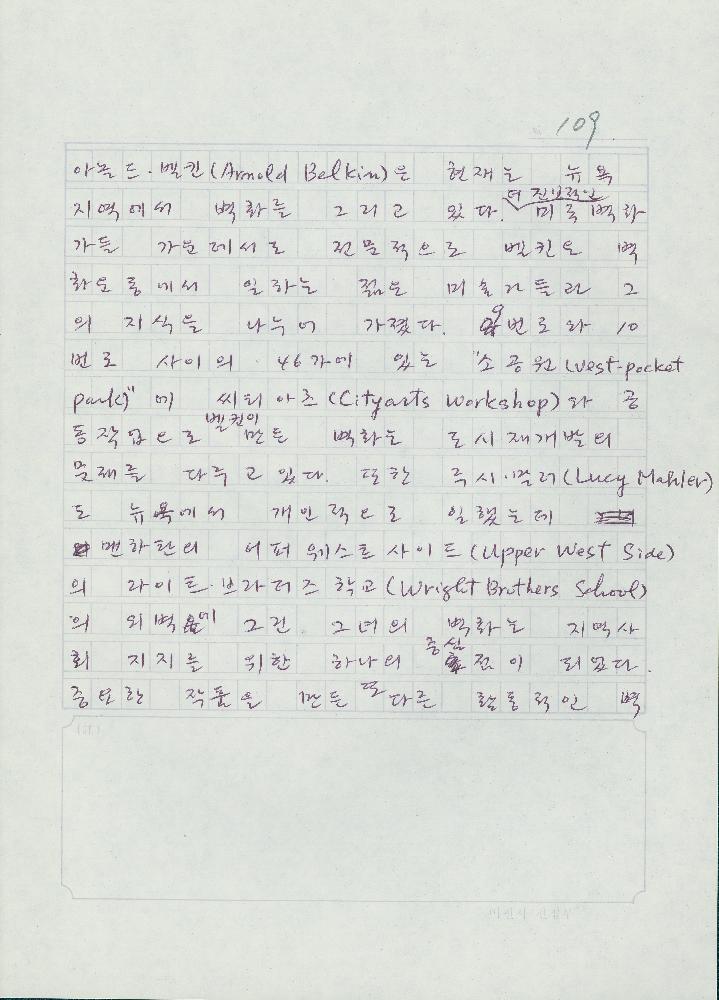 109
아놀드·벨킨(Arnold Belkin)은 현재는 뉴욕
더 진보적인
지역에서 벽화를 그리고 있다. 미국벽화
가들 가운데서도 전문적으로 벨킨은 벽
화운동에서 일하는 젊은 미술가들과 그
의 지식을 나누어 가졌다. 9번로와 10
번로 사이의 46가에 있는 "소공원(vest-pocket
park)"에 씨티아츠(Cityarts Workshop)와 공
벨킨이
동작업으로 만든 벽화는 도시재개발의
문제를 다루고있다. 또한 루시·말러(Lucy Mahler)
도 뉴욕에서 개인적으로 일했는데
맨하탄의 어퍼웨스트사이드(Upper West Side)
의 라이트·브라더즈학교(Wright Brothers School)
의 외벽에 그린 그녀의 벽화는 지역사
중심
회 지지를 위한 하나의 점이 되었다.
중요한 작품을 만든 또 다른 활동적인 벽